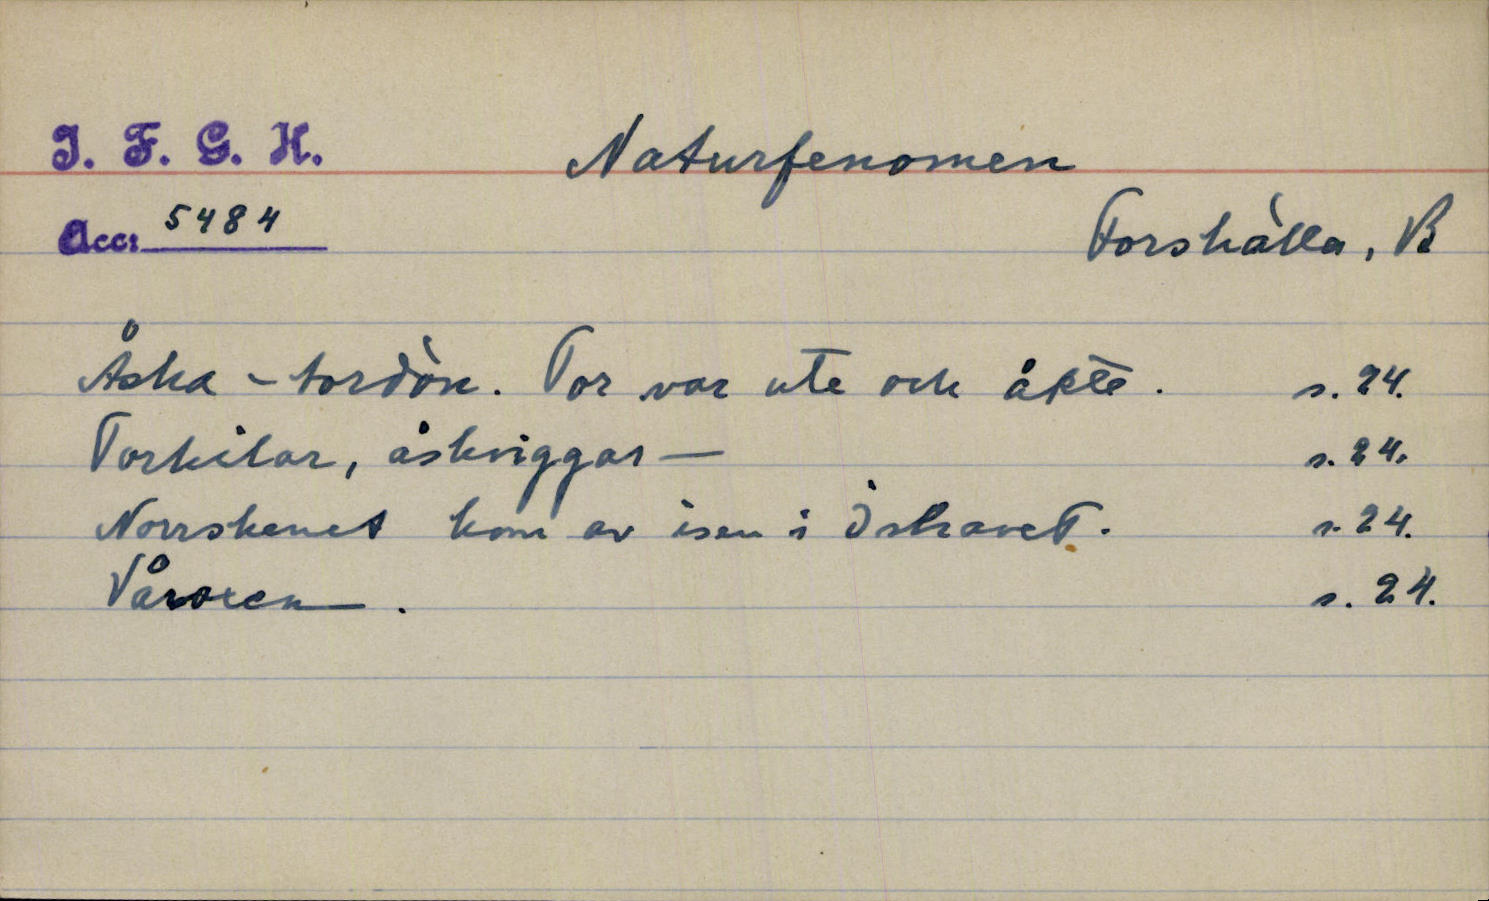 I. F. G. H.
Naturfenomen
Acc: 5484
Forshälla, B
Åska - tordön. Tor var ute och åkte. s. 24.
Torkilar, åskviggar — s. 24.
Norrskenet kom av isen i Ishavet. s. 24.
Våroxen —. s. 24.